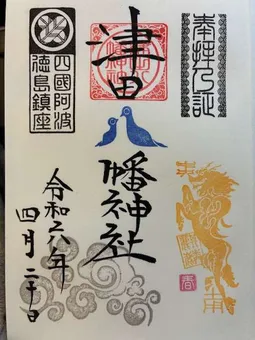 奉拝之証
津田
八幡神社
四國阿波
徳島鎮座
令和六年
四月二十日
春